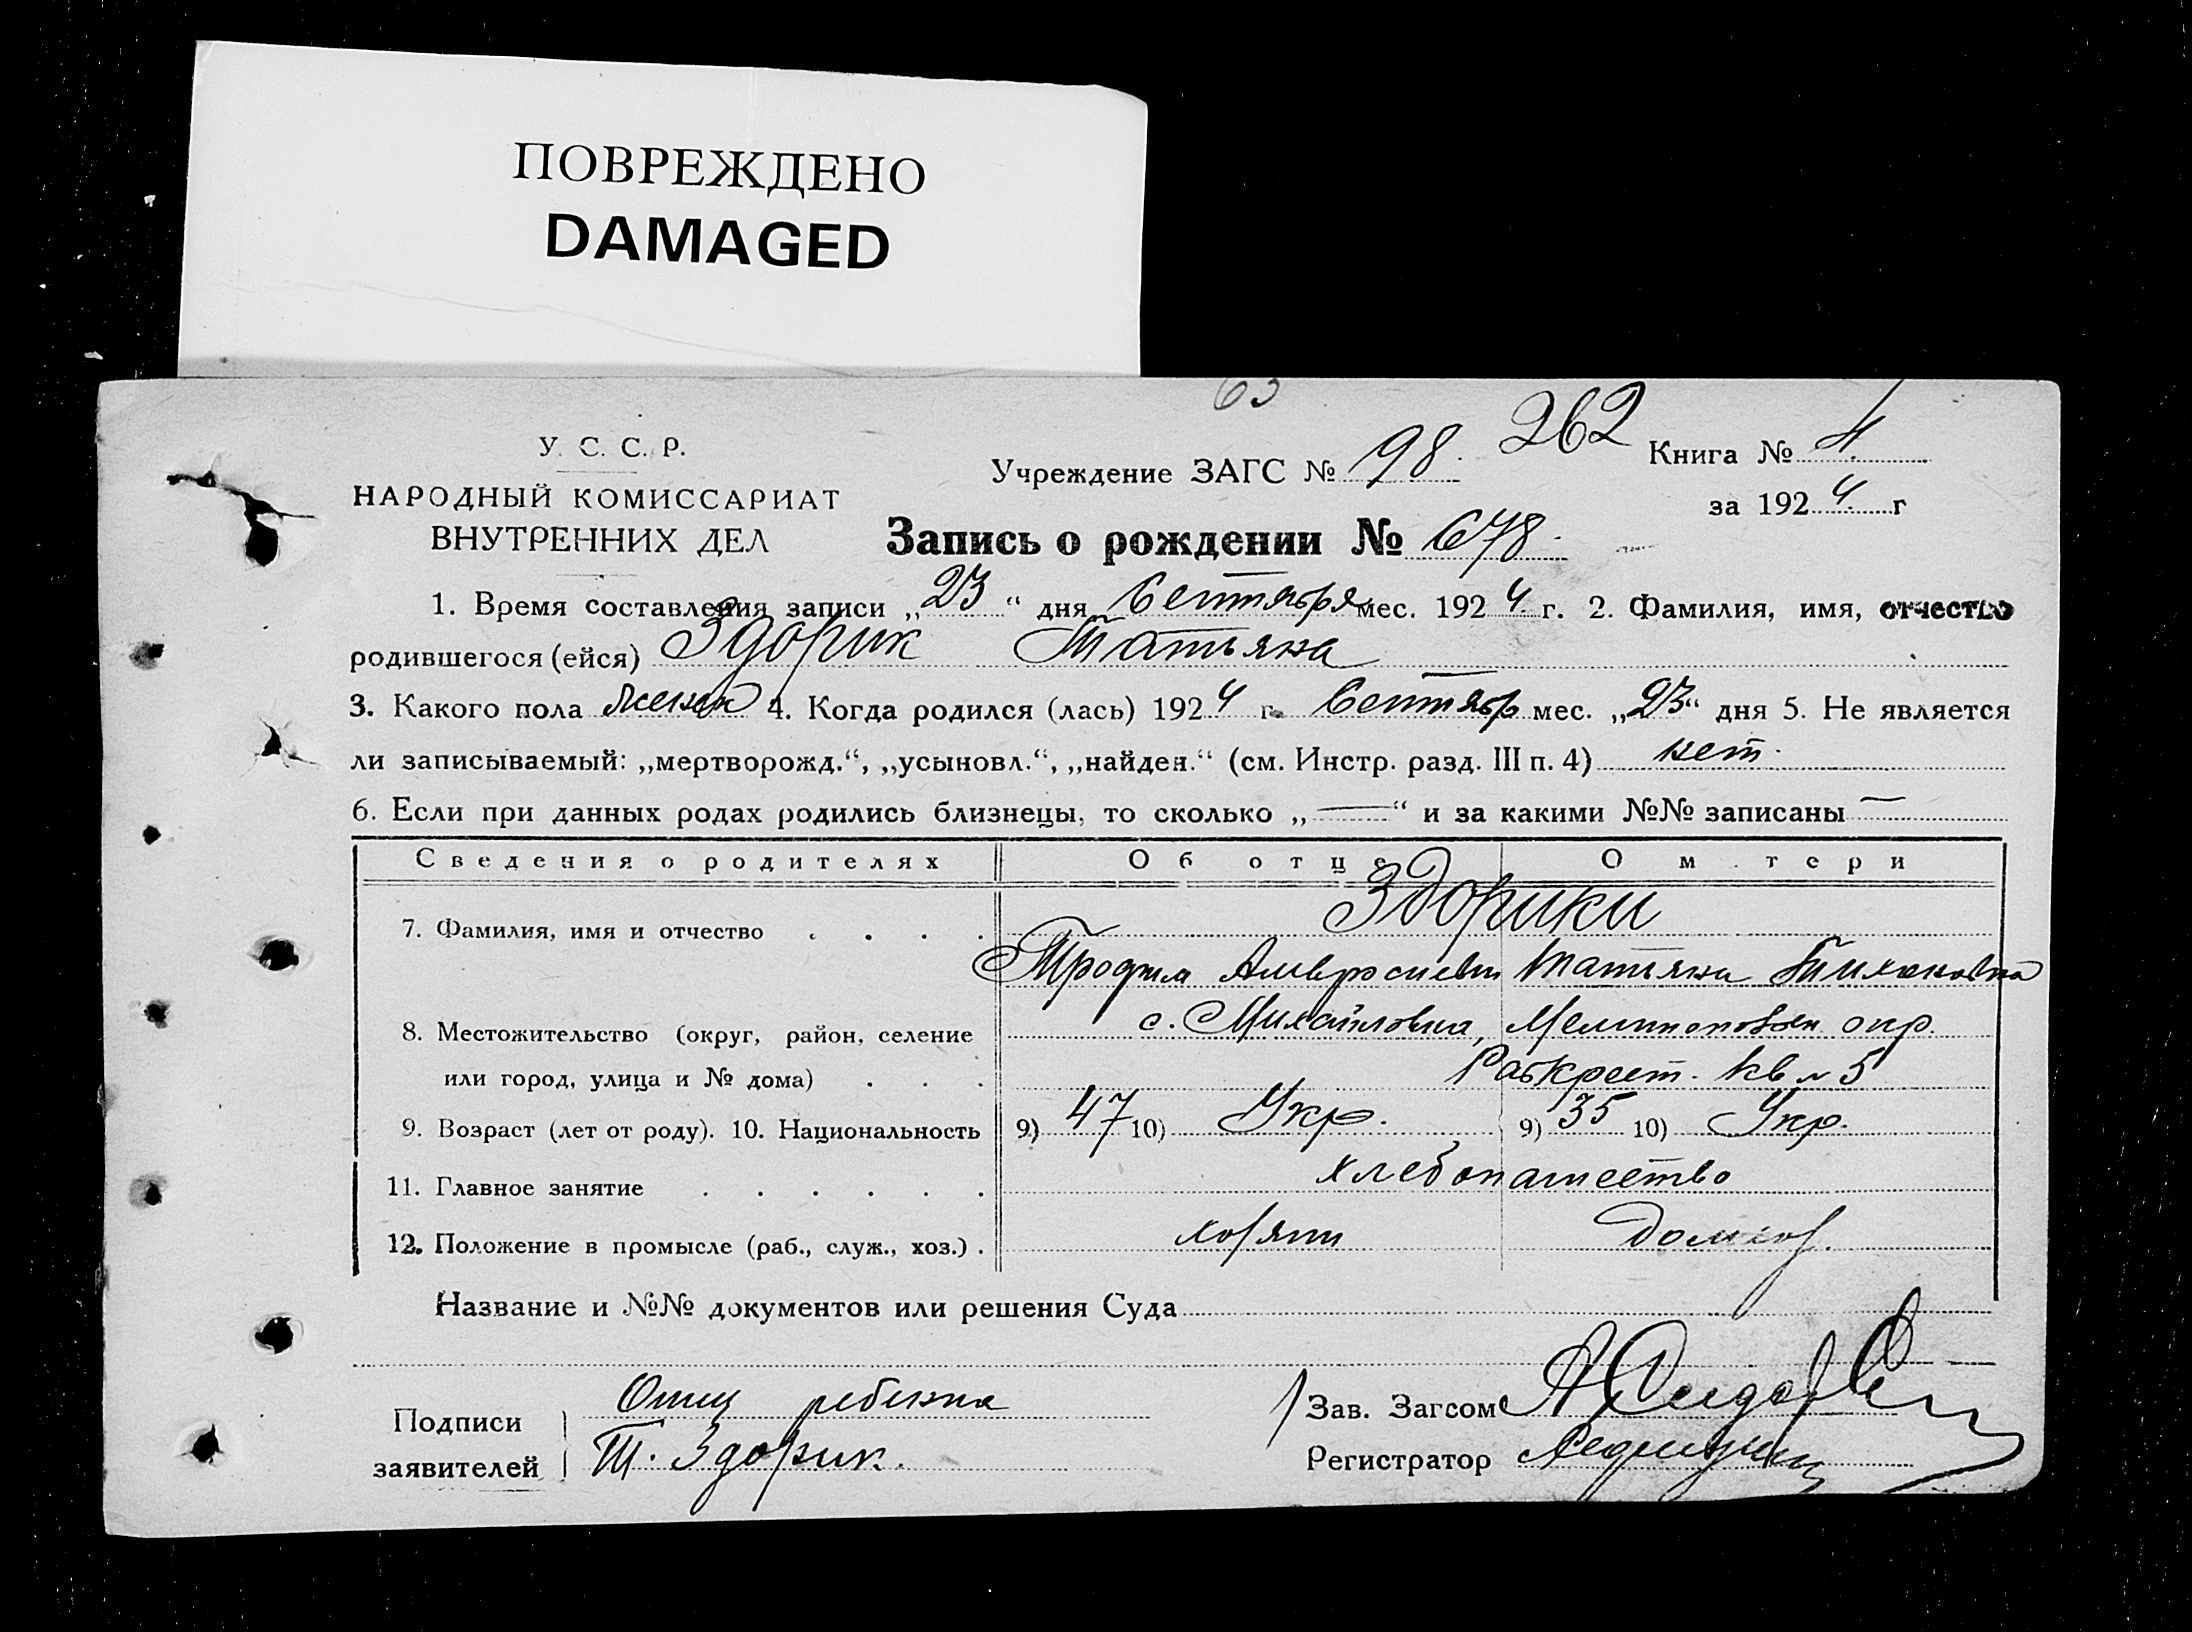 ПОВРЕЖДЕНО
DAMAGED
63
У. С. С. Р.
НАРОДНЫЙ КОМИССАРИАТ
ВНУТРЕННИХ ДЕЛ
Учреждение ЗАГС № 98. 262 Книга № 4
за 1924 г
Запись о рождении № 678.
1. Время составления записи „23“ дня Сентября мес. 1924 г. 2. Фамилия, имя, отчество
родившегося (ейся) Здорик Татьяна
3. Какого пола женск 4. Когда родился (лась) 1924 г. Сентябр мес. „23“ дня 5. Не является
ли записываемый: „мертворожд.“, „усыновл.“, „найден.“ (см. Инстр. разд. III п. 4) нет.
6. Если при данных родах родились близнецы, то сколько „—“ и за какими №№ записаны —
Сведения о родителях Об отце О м тери
7. Фамилия, имя и отчество . . . . Здорики
Трофим Амвросиевич Татьяна Тихоновна
8. Местожительство (округ, район, селение с. Михайловка, Мелитопольск окр.
или город, улица и № дома) . . . Рабкрест. кв № 5
9. Возраст (лет от роду). 10. Национальность 9) 47 10) Укр. 9) 35 10) Укр.
11. Главное занятие . . . . . . хлебопашество
12. Положение в промысле (раб., служ., хоз.) . хозяин домхоз.
Название и №№ документов или решения Суда
Подписи заявителей
Отец ребенка
Т. Здорик.
Зав. Загсом
Регистратор